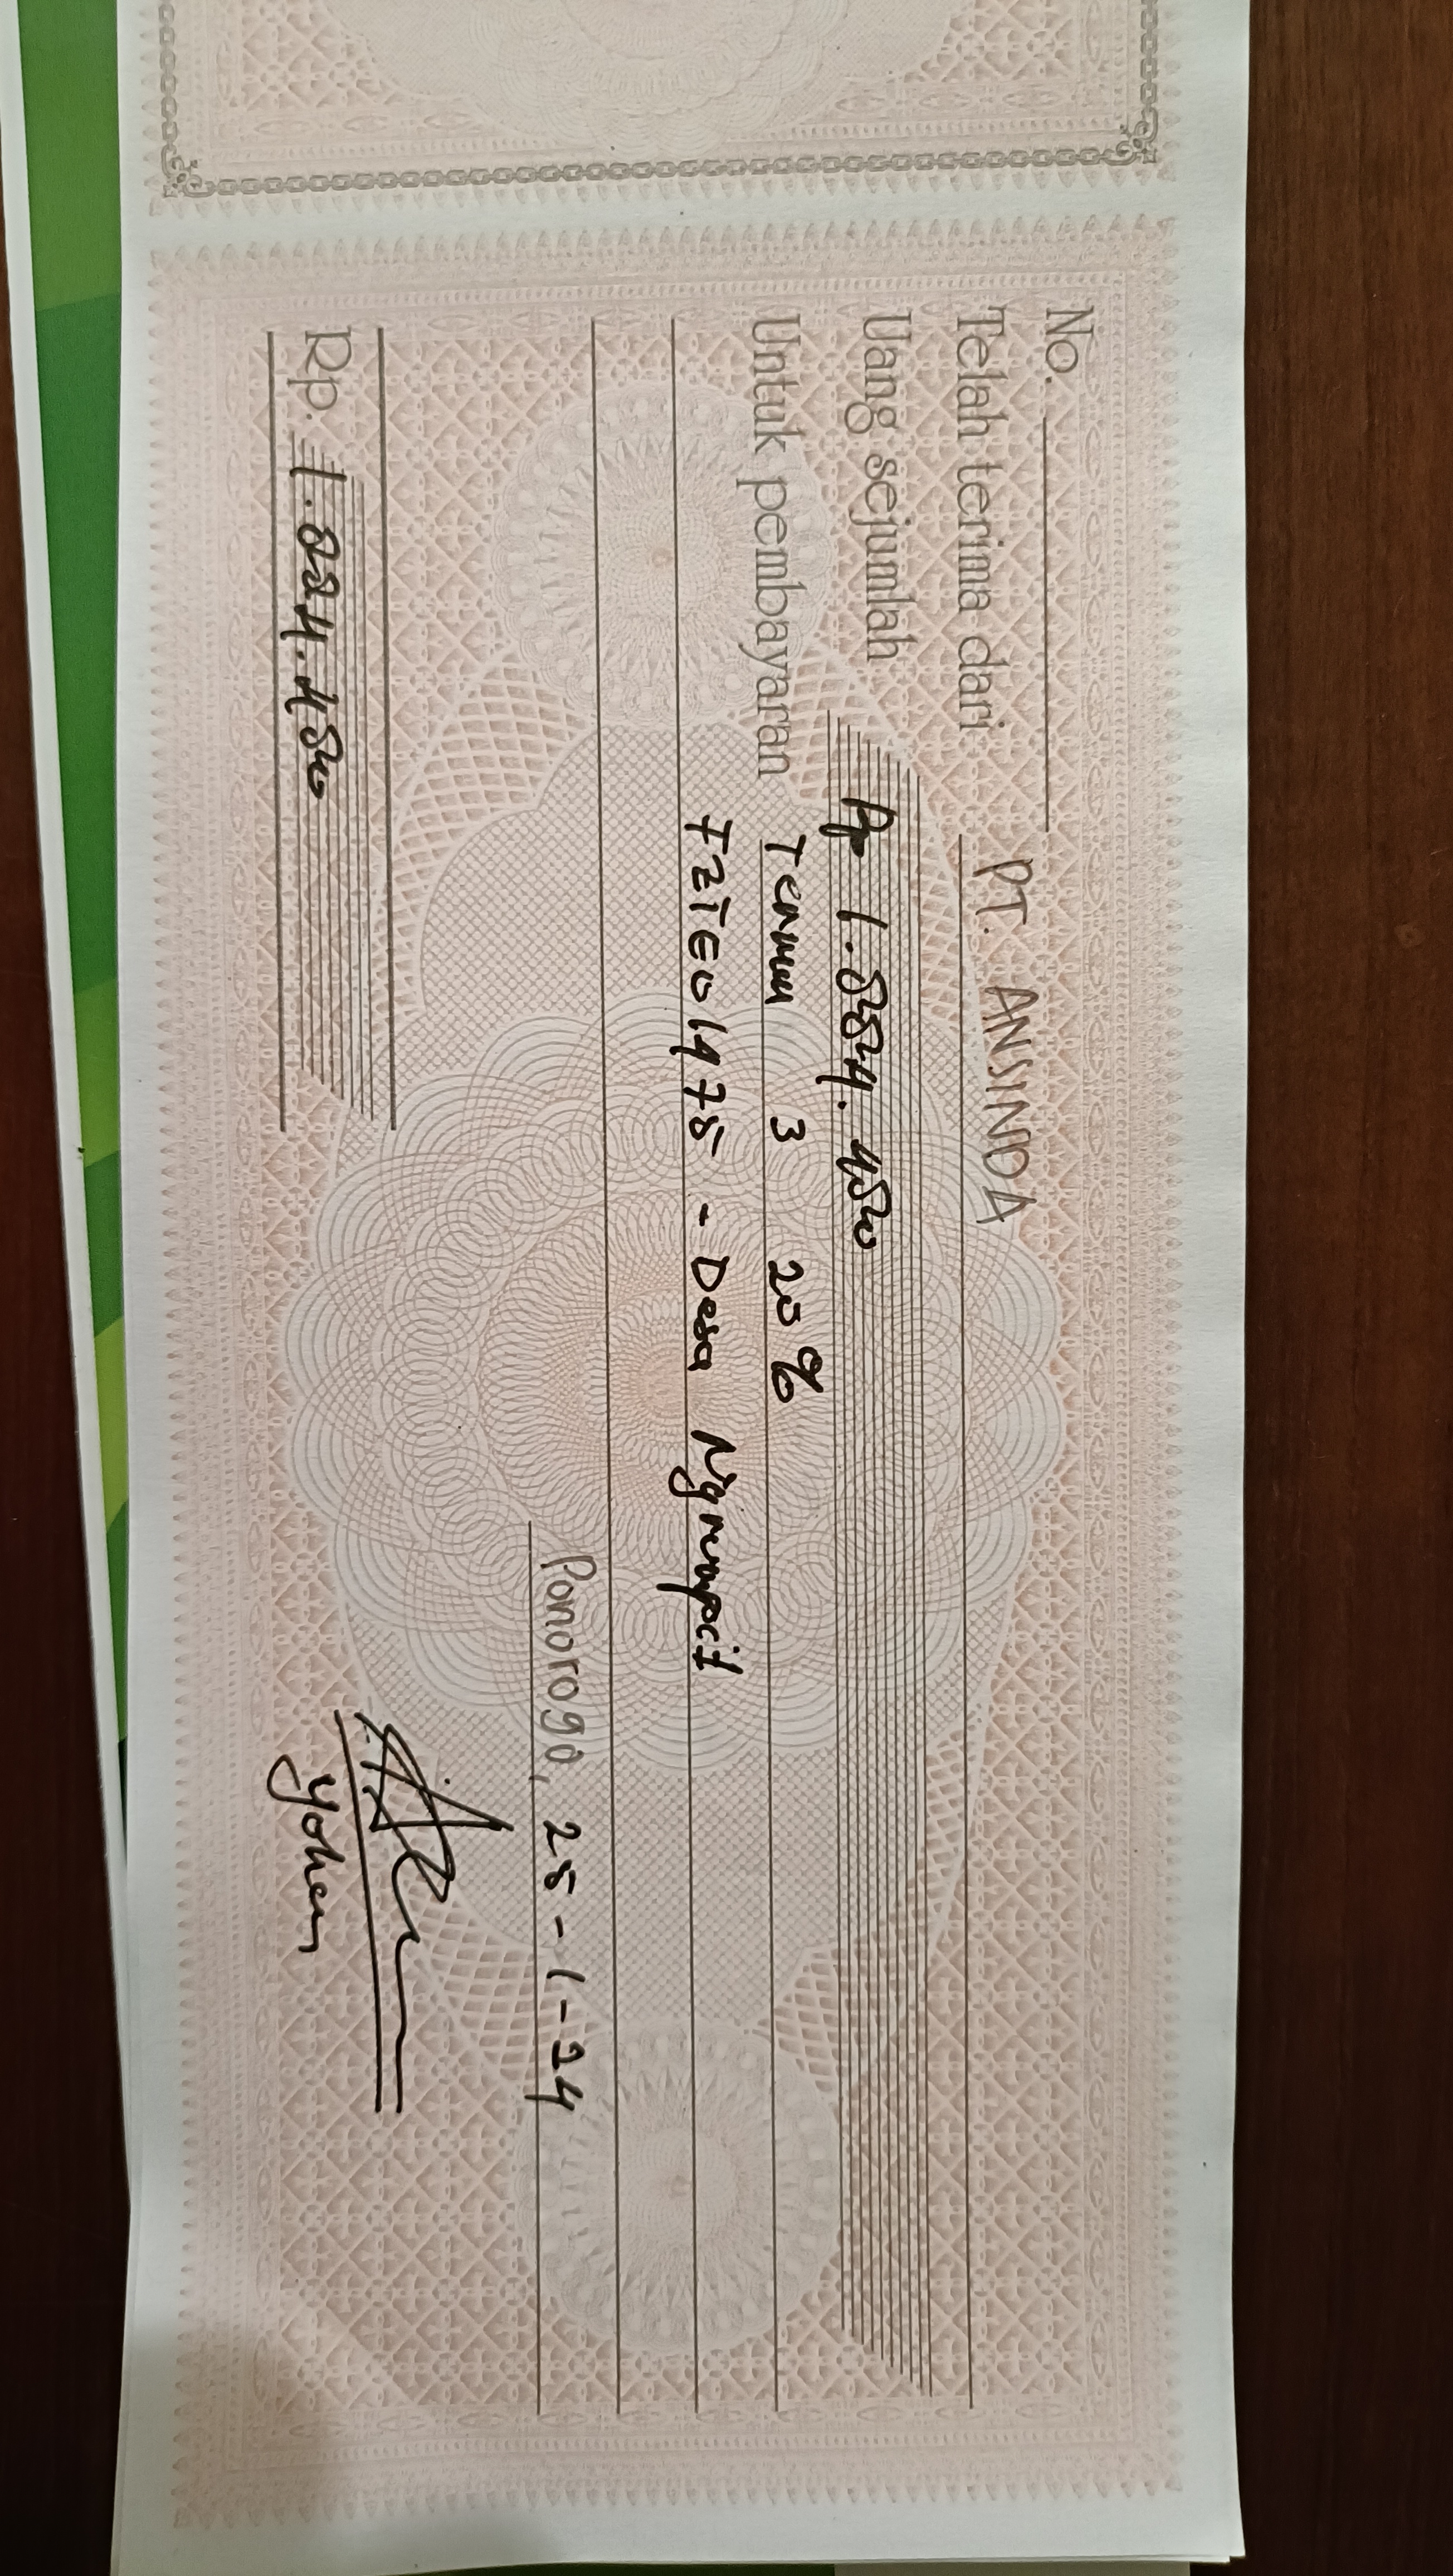 No.
Telah terima dari PT. ANSINDA
Uang sejumlah Rp
Untuk pembayaran Termin 3 20%
FZTE01475 - Desa
Ponorogo, 25-1-24
Rp.
Yohan